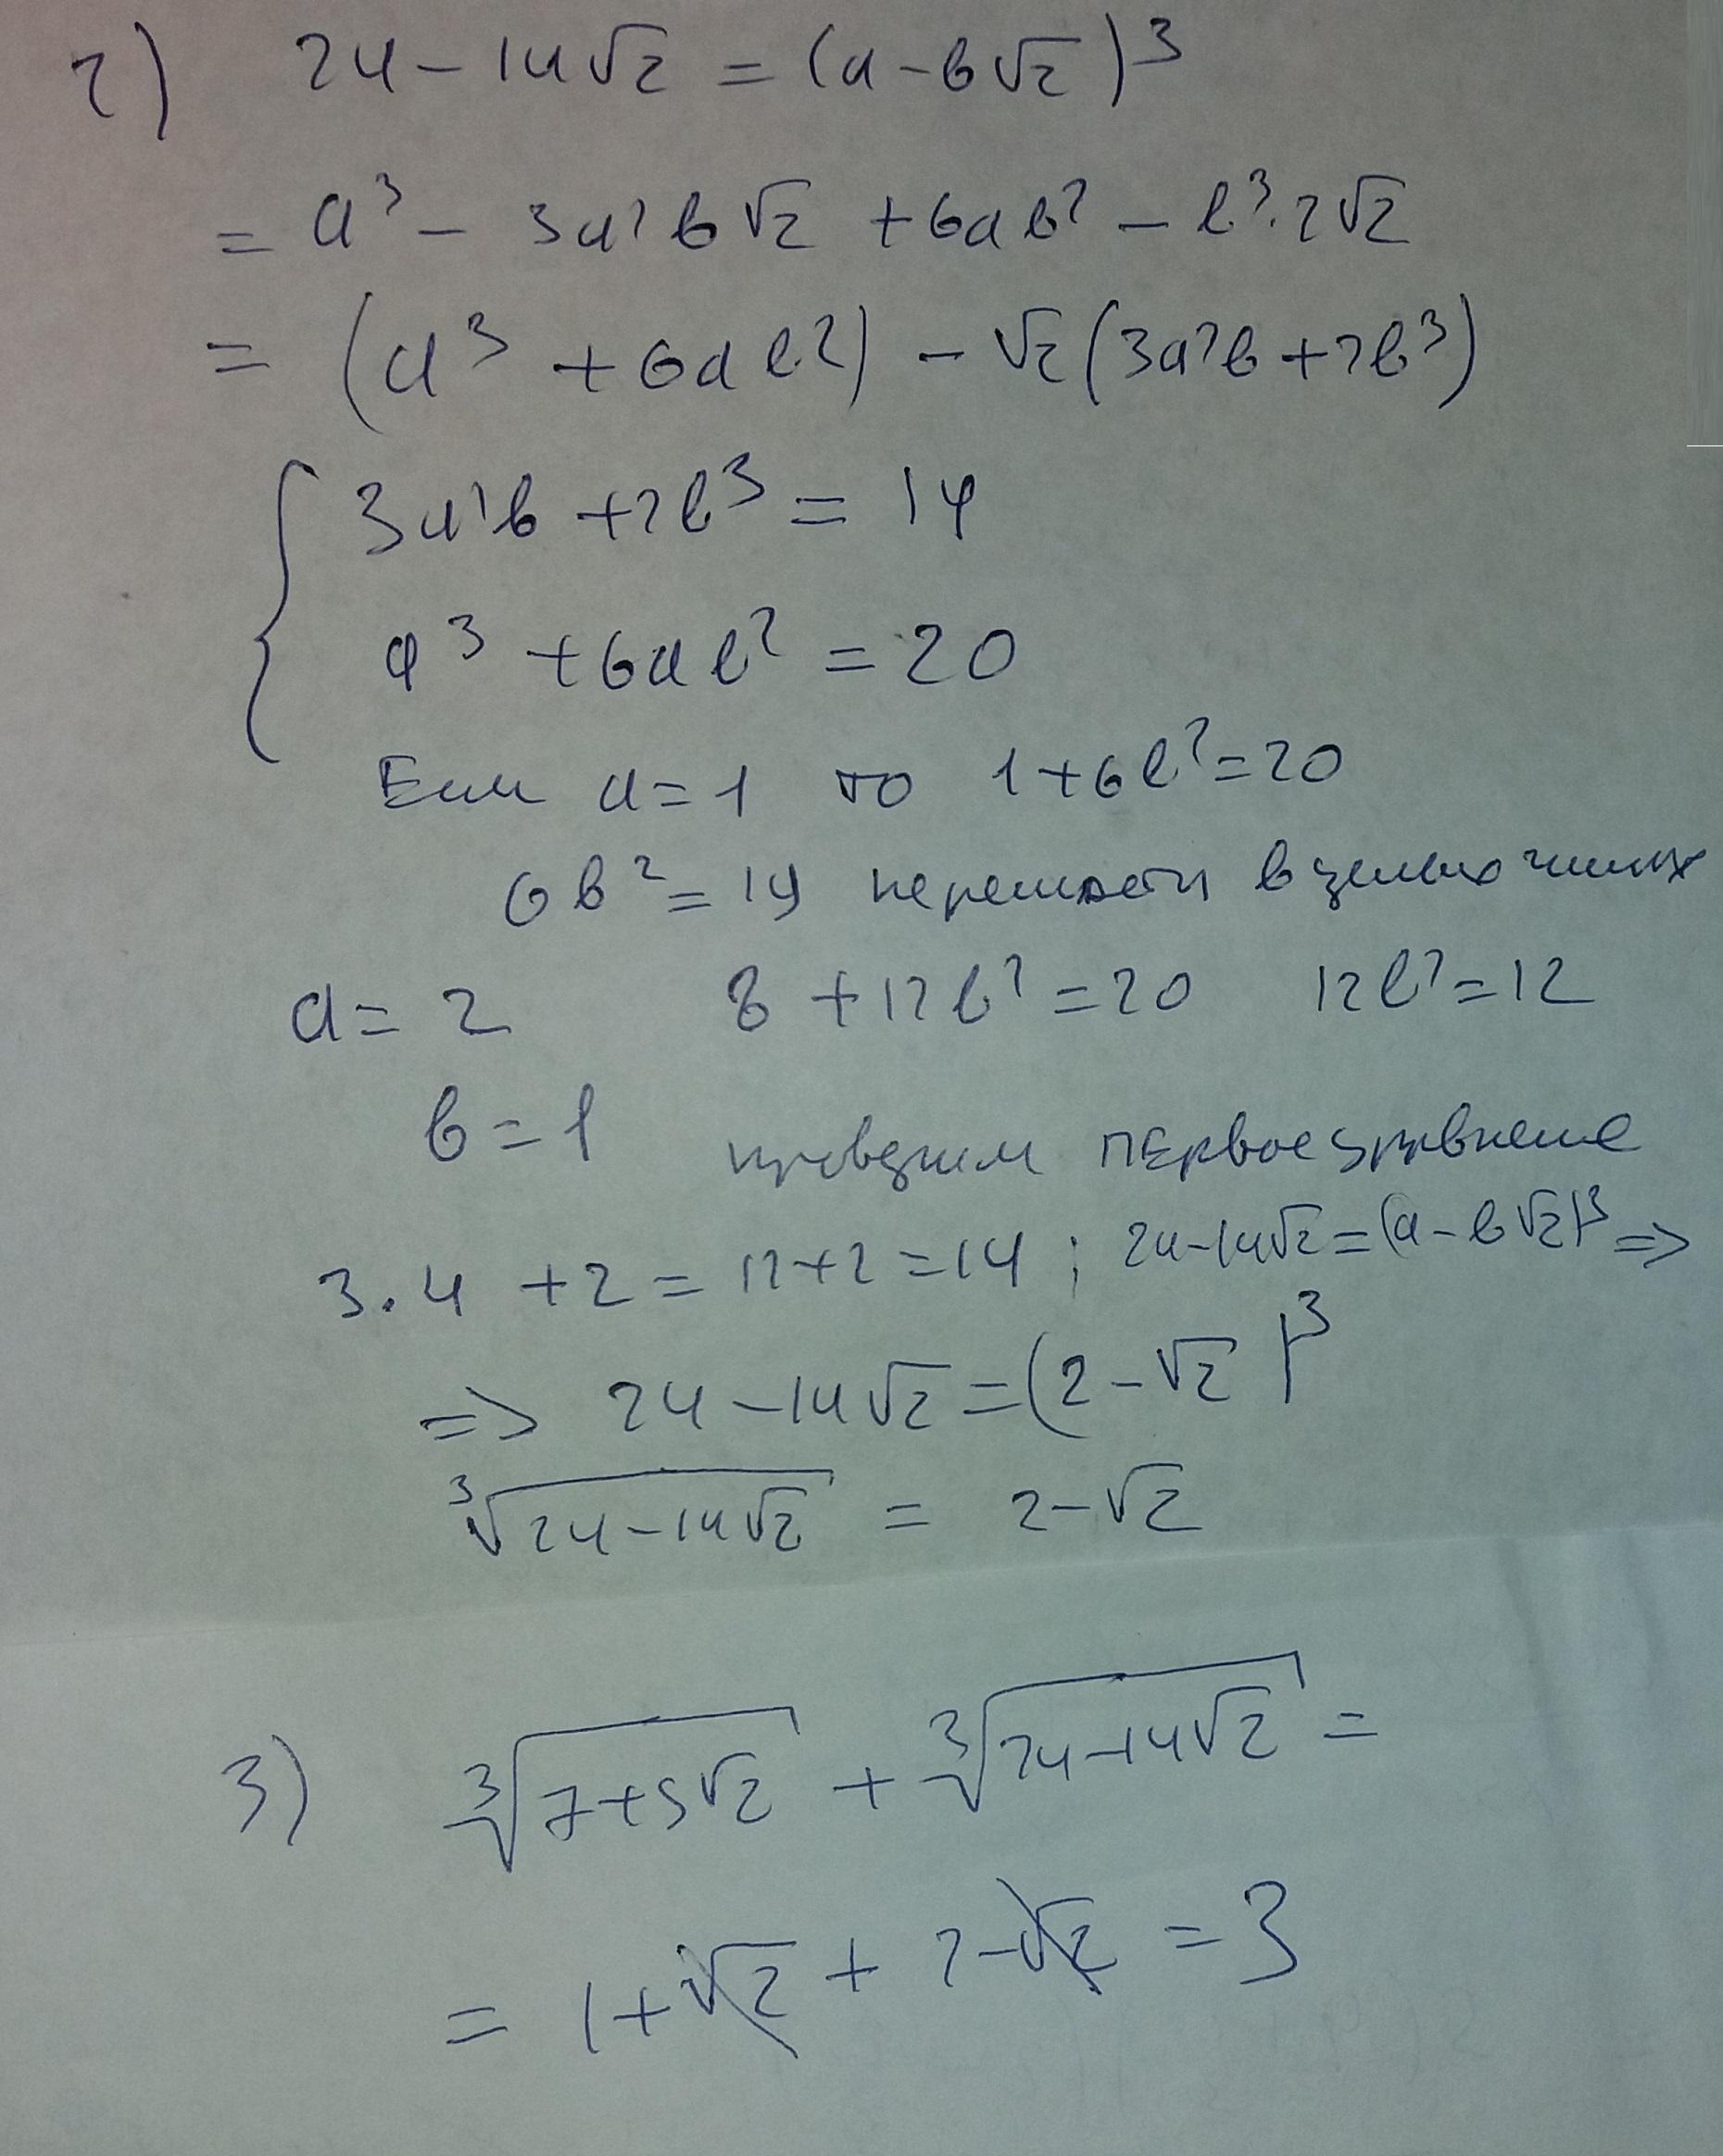 2) 24 - 14√2 = (a - b√2)³
= a³ - 3a²b√2 + 6ab² - b³·2√2
= (a³ + 6ab²) - √2(3a²b + 2b³)
3a²b + 2b³ = 14
a³ + 6ab² = 20
Если a = 1 то 1 + 6b² = 20
6b² = 19 нерешается в целых числах
a = 2 8 + 12b² = 20 12b² = 12
b = 1 проверим первое уравнение
3·4 + 2 = 12 + 2 = 14 ; 24 - 14√2 = (a - b√2)³ =>
=> 24 - 14√2 = (2 - √2)³
³√(24 - 14√2) = 2 - √2
3) ³√(7 + 5√2) + ³√(24 - 14√2) =
= 1 + √2 + 2 - √2 = 3